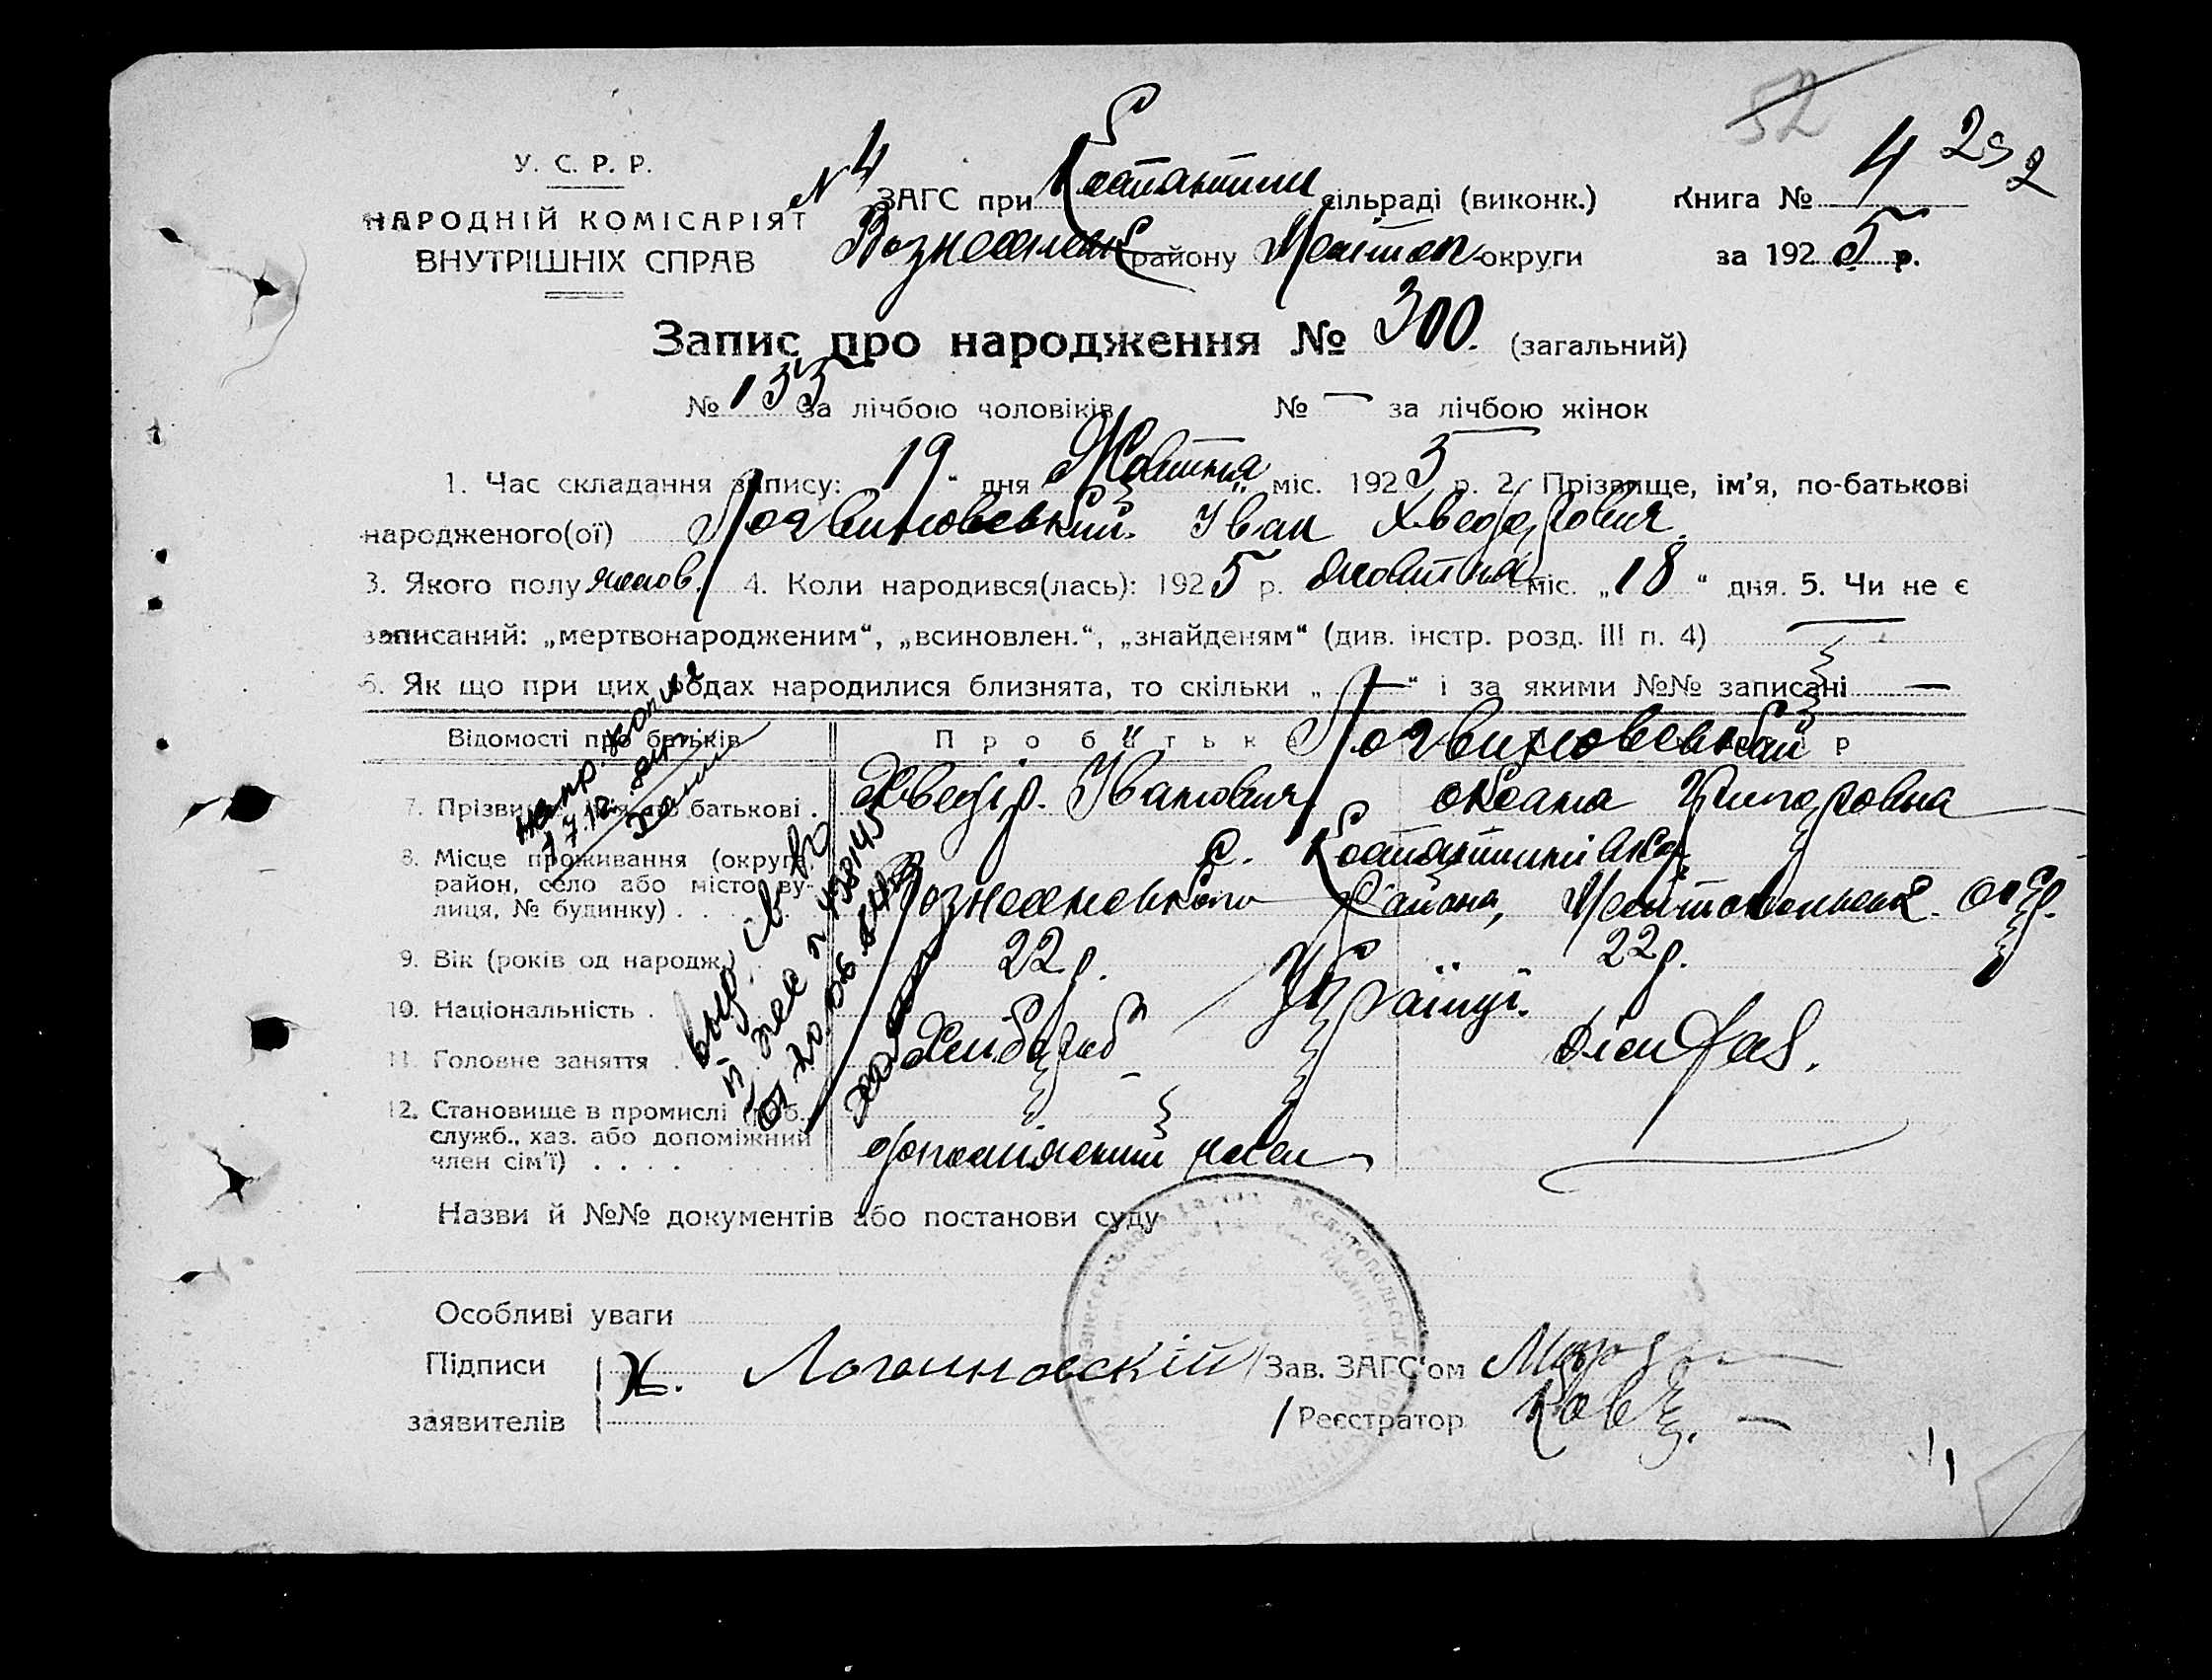 52
4 252
У. С. Р. Р.
НАРОДНІЙ КОМІСАРІЯТ
ВНУТРІШНІХ СПРАВ
N 4 ЗАГС при Костантин сільраді (виконк.) Книга № 4
Вознесенськ району Меліtоп округи за 1925 р.
Запис про народження № 300. (загальний)
№ 155 за лічбою чоловіків № — за лічбою жінок
1. Час складання запису: 19 " дня Жовтня міс. 1925 р. 2. Прізвище, ім'я, по-батькові
народженого(ої) Логвиновський Іван Хведорович
3. Якого полу чолов. 4. Коли народився(лась): 1925 р. жовтня міс. „18" дня. 5. Чи не є
записаний: „мертвонародженим", „всиновлен.", „знайденям" (див. інстр. розд. III п. 4) —
6. Як що при цих родах народилися близнята, то скільки „—" і за якими №№ записані —
Відомості про батьків Про батька Логвиновський
7. Прізвище, ім'я по батькові . Хведір Іванович Оксана Григоровна
8. Місце проживання (округа, с. Костянтинівка
район, село або місто, ву- Вознесенського Району, Мелітопольськ. окр.
лиця, № будинку) . . .
9. Вік (років од народж.) 22 р. 22 р.
10. Національність . Українці.
11. Головне заняття . Хлібороб
12. Становище в промислі (роб.,
служб., хаз. або допоміжний допоміжний член
член сім'ї) . . . .
Назви й №№ документів або постанови суду
Особливі уваги
Підписи Х. Логвиновскій Зав. ЗАГС'ом
заявителів Реєстратор
напр. копия
17.12.
выд. св-во
438145
от 20.